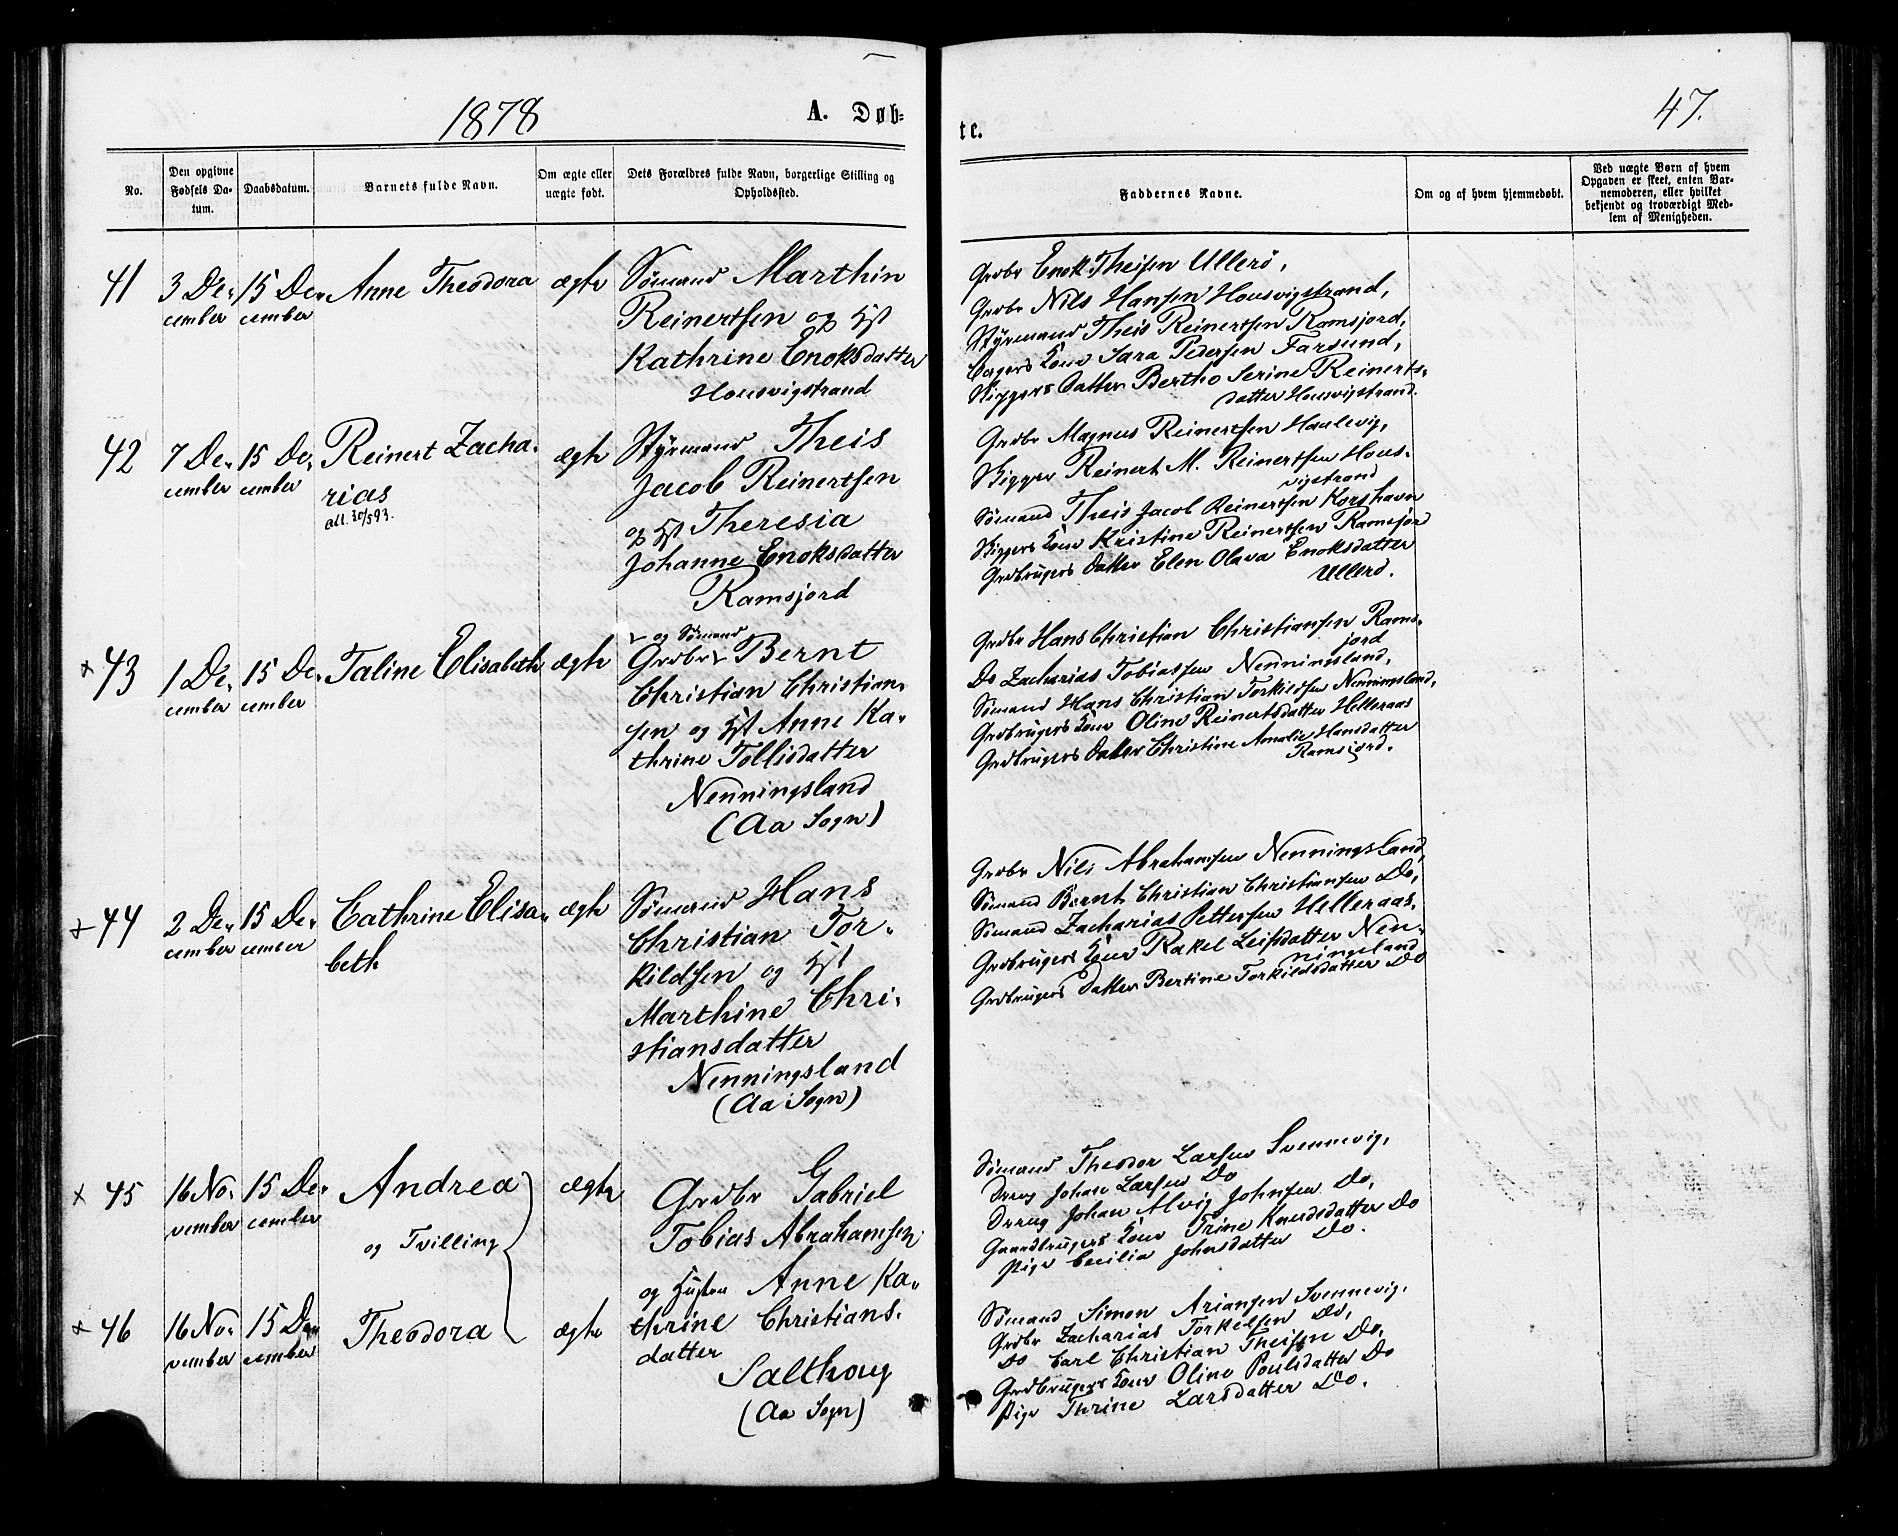 1878
A. Døb=
te.
47.
No.
Den opgivne
Fødsels Da-
tum.
Daabsdatum.
Barnets fulde Navn.
Om ægte eller
uægte født.
Dets Forældres fulde Navn, borgerlige Stilling og
Opholdssted.
Faddernes Navne.
Om og af hvem hjemmedøbt.
Ved uægte Børn af hvem
Opgaven er skeet, enten Bar-
nemoderen, eller hvilket
bekjendt og troværdigt Med-
lem af Menigheden.
41
3 De-
cember
15 De-
cember
Anne Theodora
ægte
Sømand Marthin
Reinertsen og Hst
Kathrine Enoksdatter
Housvigstrand
Grdbr Enok Theisen Ullerø,
Grdbr Nils Hansen Housvigstrand,
Styrmand Theis Reinertsen Ramsjord,
Kone Sara Pedersen Farsund,
Skippers Datter Bertho Serine Reinerts-
datter Housvigstrand.
42
7 De-
cember
15 De-
cember
Reinert Zacha-
rias
att. 30/5 93.
ægte
Styrmand Theis
Jacob Reinertsen
og Hst Theresia
Johanne Enoksdatter
Ramsjord
Grdbr Magnus Reinertsen Haulevig,
Skipper Reinert M. Reinertsen Hous-
vigstrand
Sømand Theis Jacob Reinertsen Korshavn
Skippers Kone Kristine Reinertsen Ramsjor
Grdbrugers Datter Elen Olava Enoksdatter
Ullerø.
× 43
1 De-
cember
15 De-
cember
Taline Elisabeth
ægte
og Sømand
Grdbr Bernt
Christian Christian-
sen og Hst Anne Ka-
thrine Tollisdatter
Nenningsland
(Aa Sogn)
Grdbr Hans Christian Christiansen Rams-
jord
Do Zacharias Tobiassen Nenningsland,
Sømand Hans Christian Torkildsen Nenningsland,
Grdbrugers Kone Oline Reinertsdatter Helleraas
Grdbrugers Datter Christine Amalie Hansdatter
Ramsjord.
× 44
2 De-
cember
15 De-
cember
Cathrine Elisa-
beth
ægte
Sømand Hans
Christian Tor-
kildsen og Hst
Marthine Chri-
stiansdatter
Nenningsland
(Aa Sogn)
Grdbr Nils Abrahamsen Nenningsland,
Sømand Bernt Christian Christiansen Do,
Sømand Zacharias Pettersen Helleraas,
Grdbrugers Kone Rakel Leifsdatter Nen-
ningsland
Grdbrugers Datter Bertine Torkildsdatter Do
× 45
16 No-
vember
15 De-
cember
Andrea
og Tvilling
ægte
Grdbr Gabriel
Tobias Abrahamsen
og Hustru Anne Ka-
thrine Christians-
datter
Salthoug
(Aa Sogn)
Sømand Theodor Larsen Svennevig,
Dreng Johan Larsen Do
Dreng Johan Alvig Johnsen Do,
Gaardbrugers Kone Trine Knudsdatter Do
Pige Cecilia Johnsdatter Do.
× 46
16 No-
vember
15 De-
cember
Theodora
ægte
Sømand Simon Ariansen Svennevig,
Grdbr Zacharias Torkelsen Do,
Do Carl Christian Theisen Do,
Grdbrugers Kone Oline Poulsdatter Do
Pige Thrine Larsdatter Do.